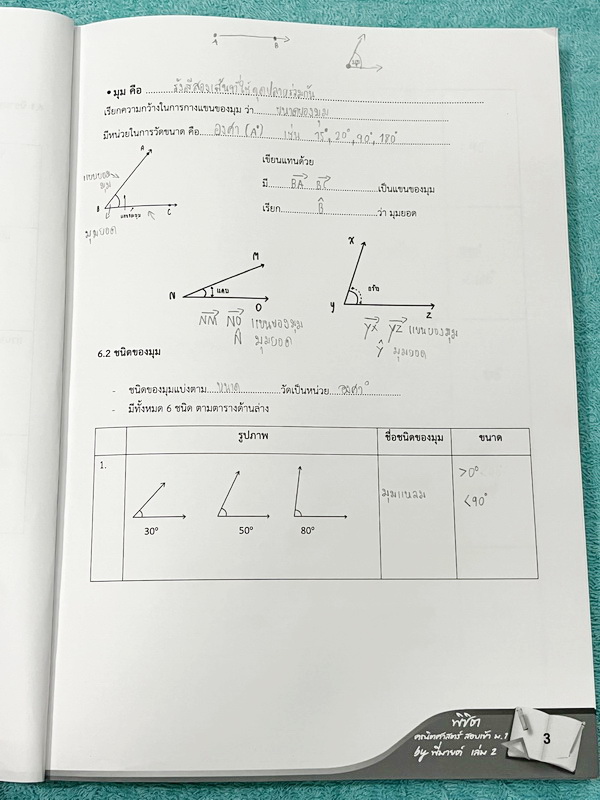 A B
มุม
• มุม คือ รังสีสองเส้นที่ใช้จุดปลายร่วมกัน
เรียกความกว้างในการกางแขนของมุม ว่า ขนาดของมุม
มีหน่วยในการวัดขนาด คือ องศา (A°) เช่น 15°, 20°, 90°, 180°
A
แขนของมุม
B C
แขนของมุม
มุมยอด
เขียนแทนด้วย
มี BA BC เป็นแขนของมุม
เรียก B̂ ว่า มุมยอด
M
N แคบ O
NM NO แขนของมุม
N̂ มุมยอด
X
กว้าง
Y Z
YX YZ แขนของมุม
Ŷ มุมยอด
6.2 ชนิดของมุม
- ชนิดของมุมแบ่งตาม ขนาด วัดเป็นหน่วย องศา°
- มีทั้งหมด 6 ชนิด ตามตารางด้านล่าง
รูปภาพ ชื่อชนิดของมุม ขนาด
1.
30° 50° 80°
มุมแหลม
>0°
<90°
พิชิต
คณิตศาสตร์ สอบเข้า ม.1
by พี่มายด์ เล่ม 2
3